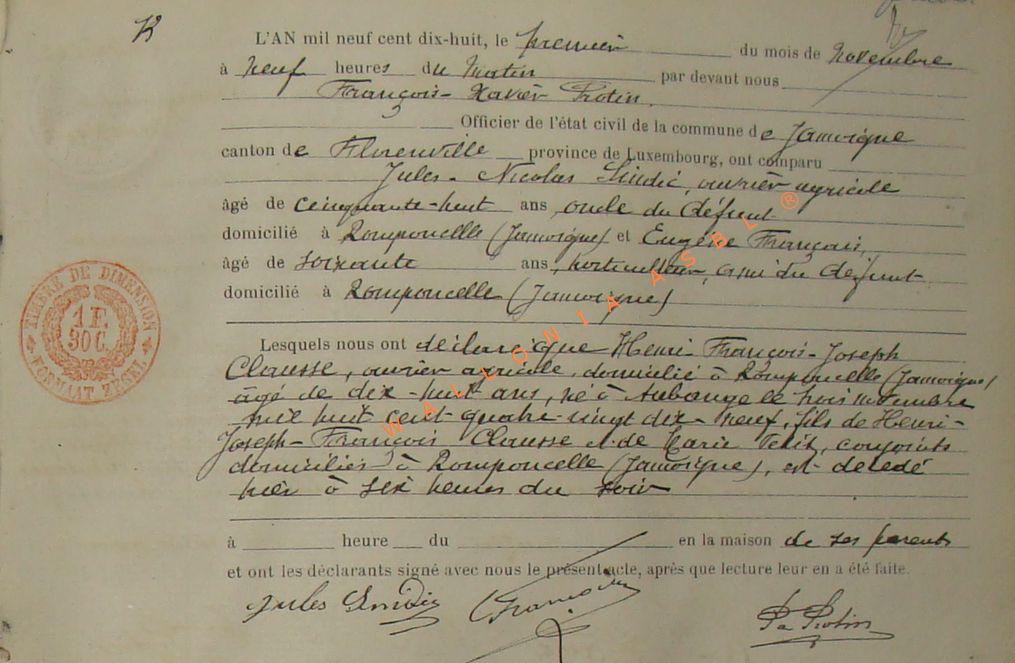 L'AN mil neuf cent dix-huit, le premier du mois de novembre
à neuf heures du matin par devant nous
François-Xavier Protin
Officier de l'état civil de la commune de Jamoigne
canton de Florenville province de Luxembourg, ont comparu
Jules-Nicolas, ouvrier agricole
âgé de cinquante-huit ans, oncle du défunt
domicilié à Romponcelle (Jamoigne) et Eugène François,
âgé de soixante ans, horticulteur, ami du défunt
domicilié à Romponcelle (Jamoigne)
Lesquels nous ont déclaré que Henri François-Joseph
Clausse, ouvrier agricole, domicilié à Romponcelle (Jamoigne)
âgé de dix-huit ans, né à Aubange le trois novembre
mil huit cent quatre-vingt dix-neuf, fils de Henri-
Joseph-François Clausse et de Marie Petit, conjoints
domiciliés à Romponcelle (Jamoigne), est décédé
hier à six heures du soir
à heure du en la maison de ses parents
et ont les déclarants signé avec nous le présent acte, après que lecture leur en a été faite.
Jules François Protin
TIMBRE DE DIMENSION
1 F.
30 C.
FORMAT
WALLONIA ASBL ®